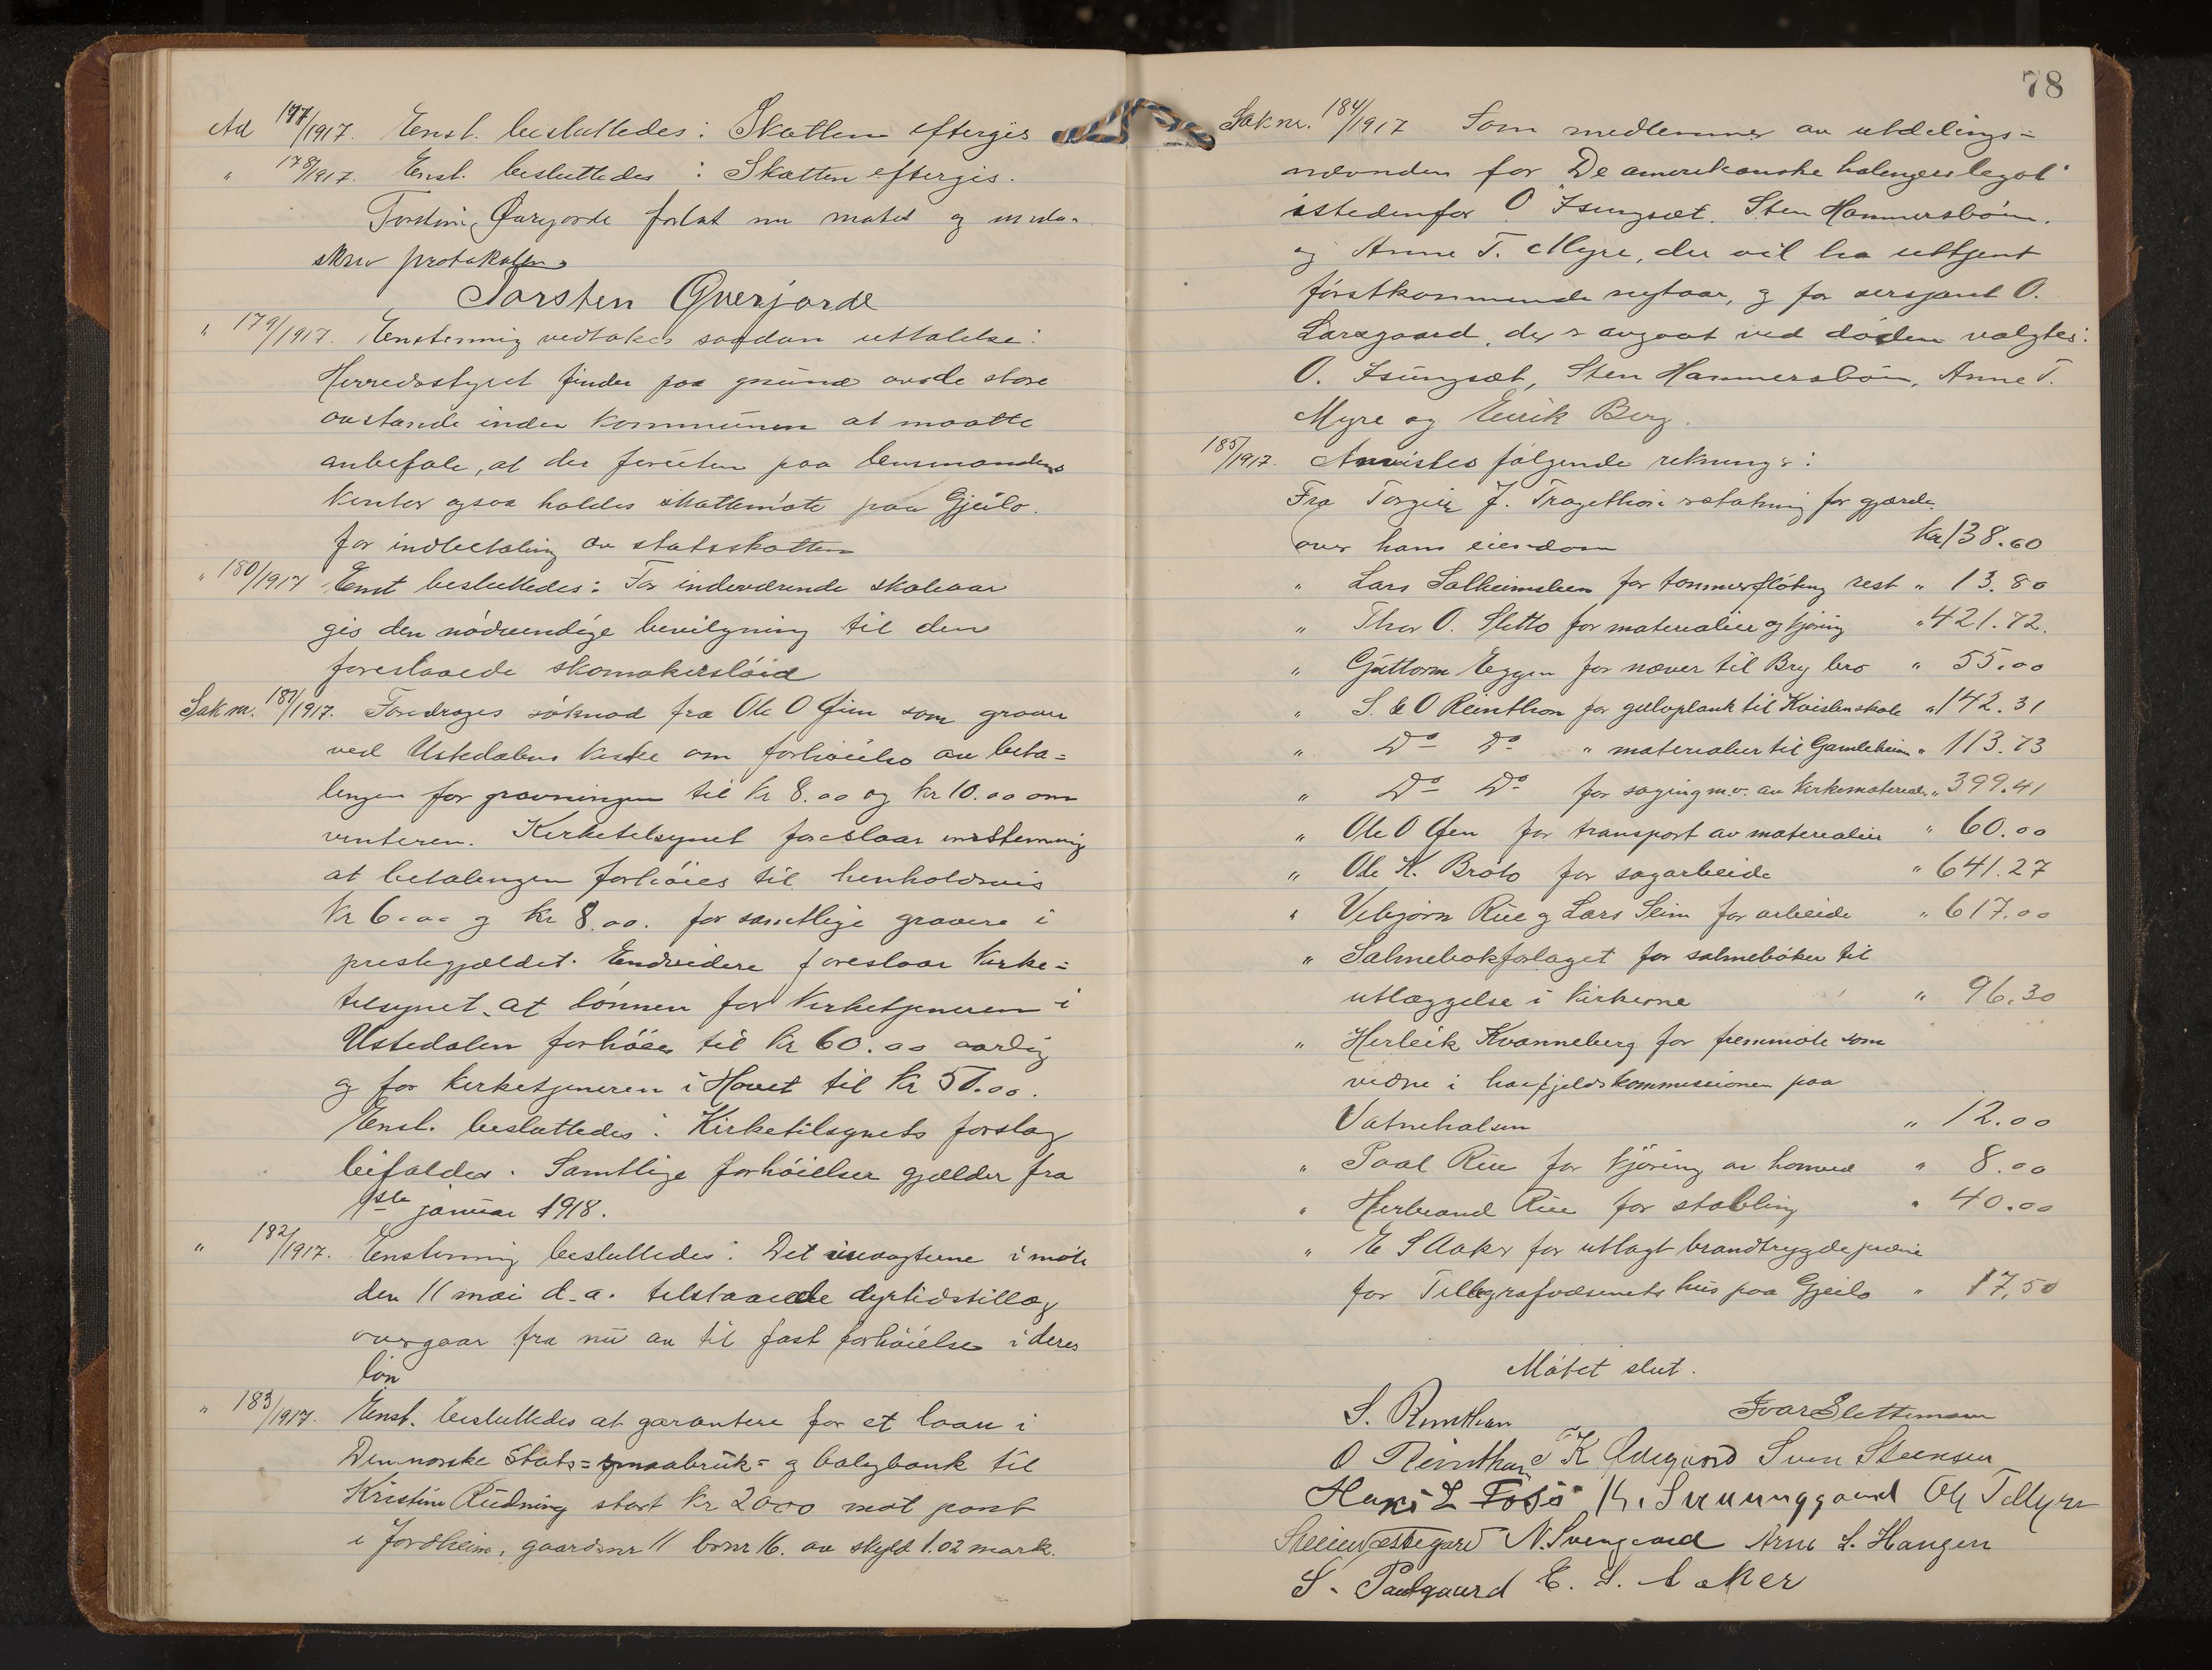 Ad 177/1917. Enst. besluttedes: Skatten eftergis
" 178/1917. Enst. besluttedes: Skatten eftergis.
Torstein Øverjorde forlot nu møtet og under-
skrev protokollen
Torsten Øverjorde
" 179/1917. Enstemmig vedtokes saadan uttalelse:
Herredsstyret finder paa grund av de store
avstande inden kommunen at maatte
anbefale, at der foruten paa lensmandens
kontor ogsaa holdes skattemøte paa Gjeilo.
for indbetaling av statsskatten
" 180/1917 Enst besluttedes: For indeværende skoleaar
gis den nödvendige bevilgning til den
foreslaaede skomakerslöid
Sak nr. 181/1917. Foredroges söknad fra Ole O Öien som graver
ved Ustedalens kirke om forhöielse av beta=
lingen for gravningen til kr 8.00 og kr 10.00 om
vinteren. Kirketilsynet foreslaar enstemmig
at betalingen forhöies til henholdsvis
kr 6.00 og kr 8.00. for samtlige gravere i
prestegjældet. Endvidere foreslaar kirke=
tilsynet at lönnen for kirketjeneren i
Ustedalen forhöies til kr 60.00 aarlig
og for kirketjeneren i Hovet til kr 50.00.
Enst. besluttedes: Kirketilsynets forslag
bifaldes. Samtlige forhöielser gjælder fra
1ste januar 1918.
" 182/1917. Enstemmig besluttedes: Det i møte
den 11 mai d.a. tilstaaede dyrtidstillæg
overgaar fra nu av til fast forhöielse i deres
løn
" 183/1917. Enst. besluttedes at garantere for et laan i
Den norske Stats=smaabruk= og boligbank til
Kristine Rudning stort kr 2000 mot pant
i Jordheim, gaardsnr 11 brnr 16. av skyld 1.02 mark.
78
Sak nr. 184/1917 Som medlemmer av utdelings=
nævnden for "De amerikanske halingers legat"
istedenfor O. Isungset. Sten Hammersböen.
og Anne T. Myre, der vil ha uttjent
förstkommende nytaar, og for sersjant O.
Laragaard, der er avgaat ved döden valgtes:
O. Isungset, Sten Hammersböen, Anne T.
Myre og Eirik Berg.
185/1917. Anvistes følgende rekninger:
Fra Torgeir J. Tragethon erstatning for gjærde
over hans eiendom Kr 138.60
" Lars Solheimslien for tømmerflötning rest " 13.80
" Thor O. Sletto for materialier og kjöring " 421.72.
" Guttorm Eggen for næver til Bry bro " 55.00
" S. & O Reinthon for gulvplank til Kvislen skole " 142.31
" Do Do " materialier til Gamleheim " 113.73
" Do Do for saging m.v. av kirkematerialer " 399.41
" Ole O Öien for transport av materialier " 60.00
" Ole K. Bröto for sagarbeide " 641.27
" Vebjörn Rue og Lars Slim for arbeide " 617.00
" Salmebokforlaget for salmeböker til
utlæggelse i kirkerne " 96.30
" Herleik Kvanneberg for fremmöte som
vidne i høifjeldskommissionen paa
Vatnehalsen " 12.00
" Paal Rue for kjöring av horved " 8.00
" Herbrand Rue for stabling " 40.00
" E S Aaker for utlagt brandtrygdepræmie
for Telegrafvæsenets hus paa Gjeilo " 17,50
Mötet slut.
S. Reinthon Ivar Slettemoen
O Reinthon T K Ødegaard Sven Steensen
Hans L Foss K. Sunnunggaard Ole T Myre
Steinar Vestegard N. Svengaard Arne L. Haugen
S. Paulgaard E. S. Aaker